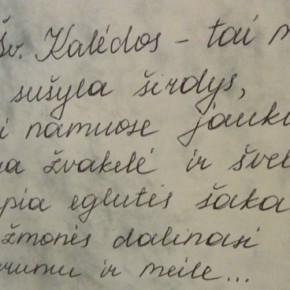 Šv. Kalėdos - tai
sušyla širdys,
namuose
žvakelė ir
eglutės šaka
žmonės dalinasi
ir meile...